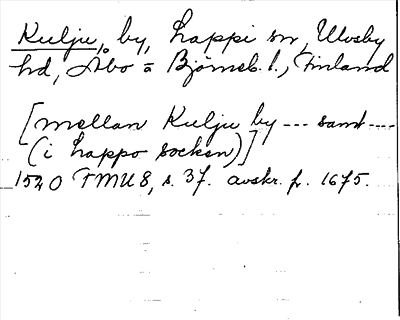 Kulju, by, Lappi sn, Ulvsby
hd, Åbo o Björneb. l., Finland
[mellan Kulju by --- samt ---
(i Lappo socken)]
1540 FMU 8, s. 37. avskr. fr. 1675.